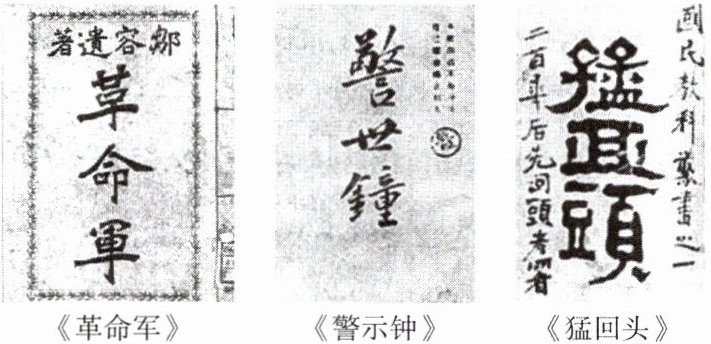 鄒容遺著
革命軍
警世鐘
國民教科叢書之一
猛回頭
二百年后先回頭者
《革命军》
《警示钟》
《猛回头》